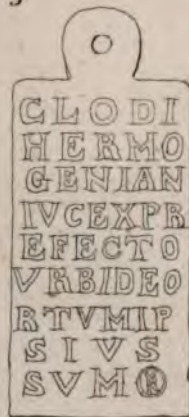 CLODI
HERMO
GENIAN
IVCEXPR
EFECTO
VRBIDEO
RTVMIP
SIVS
SVMⓇ